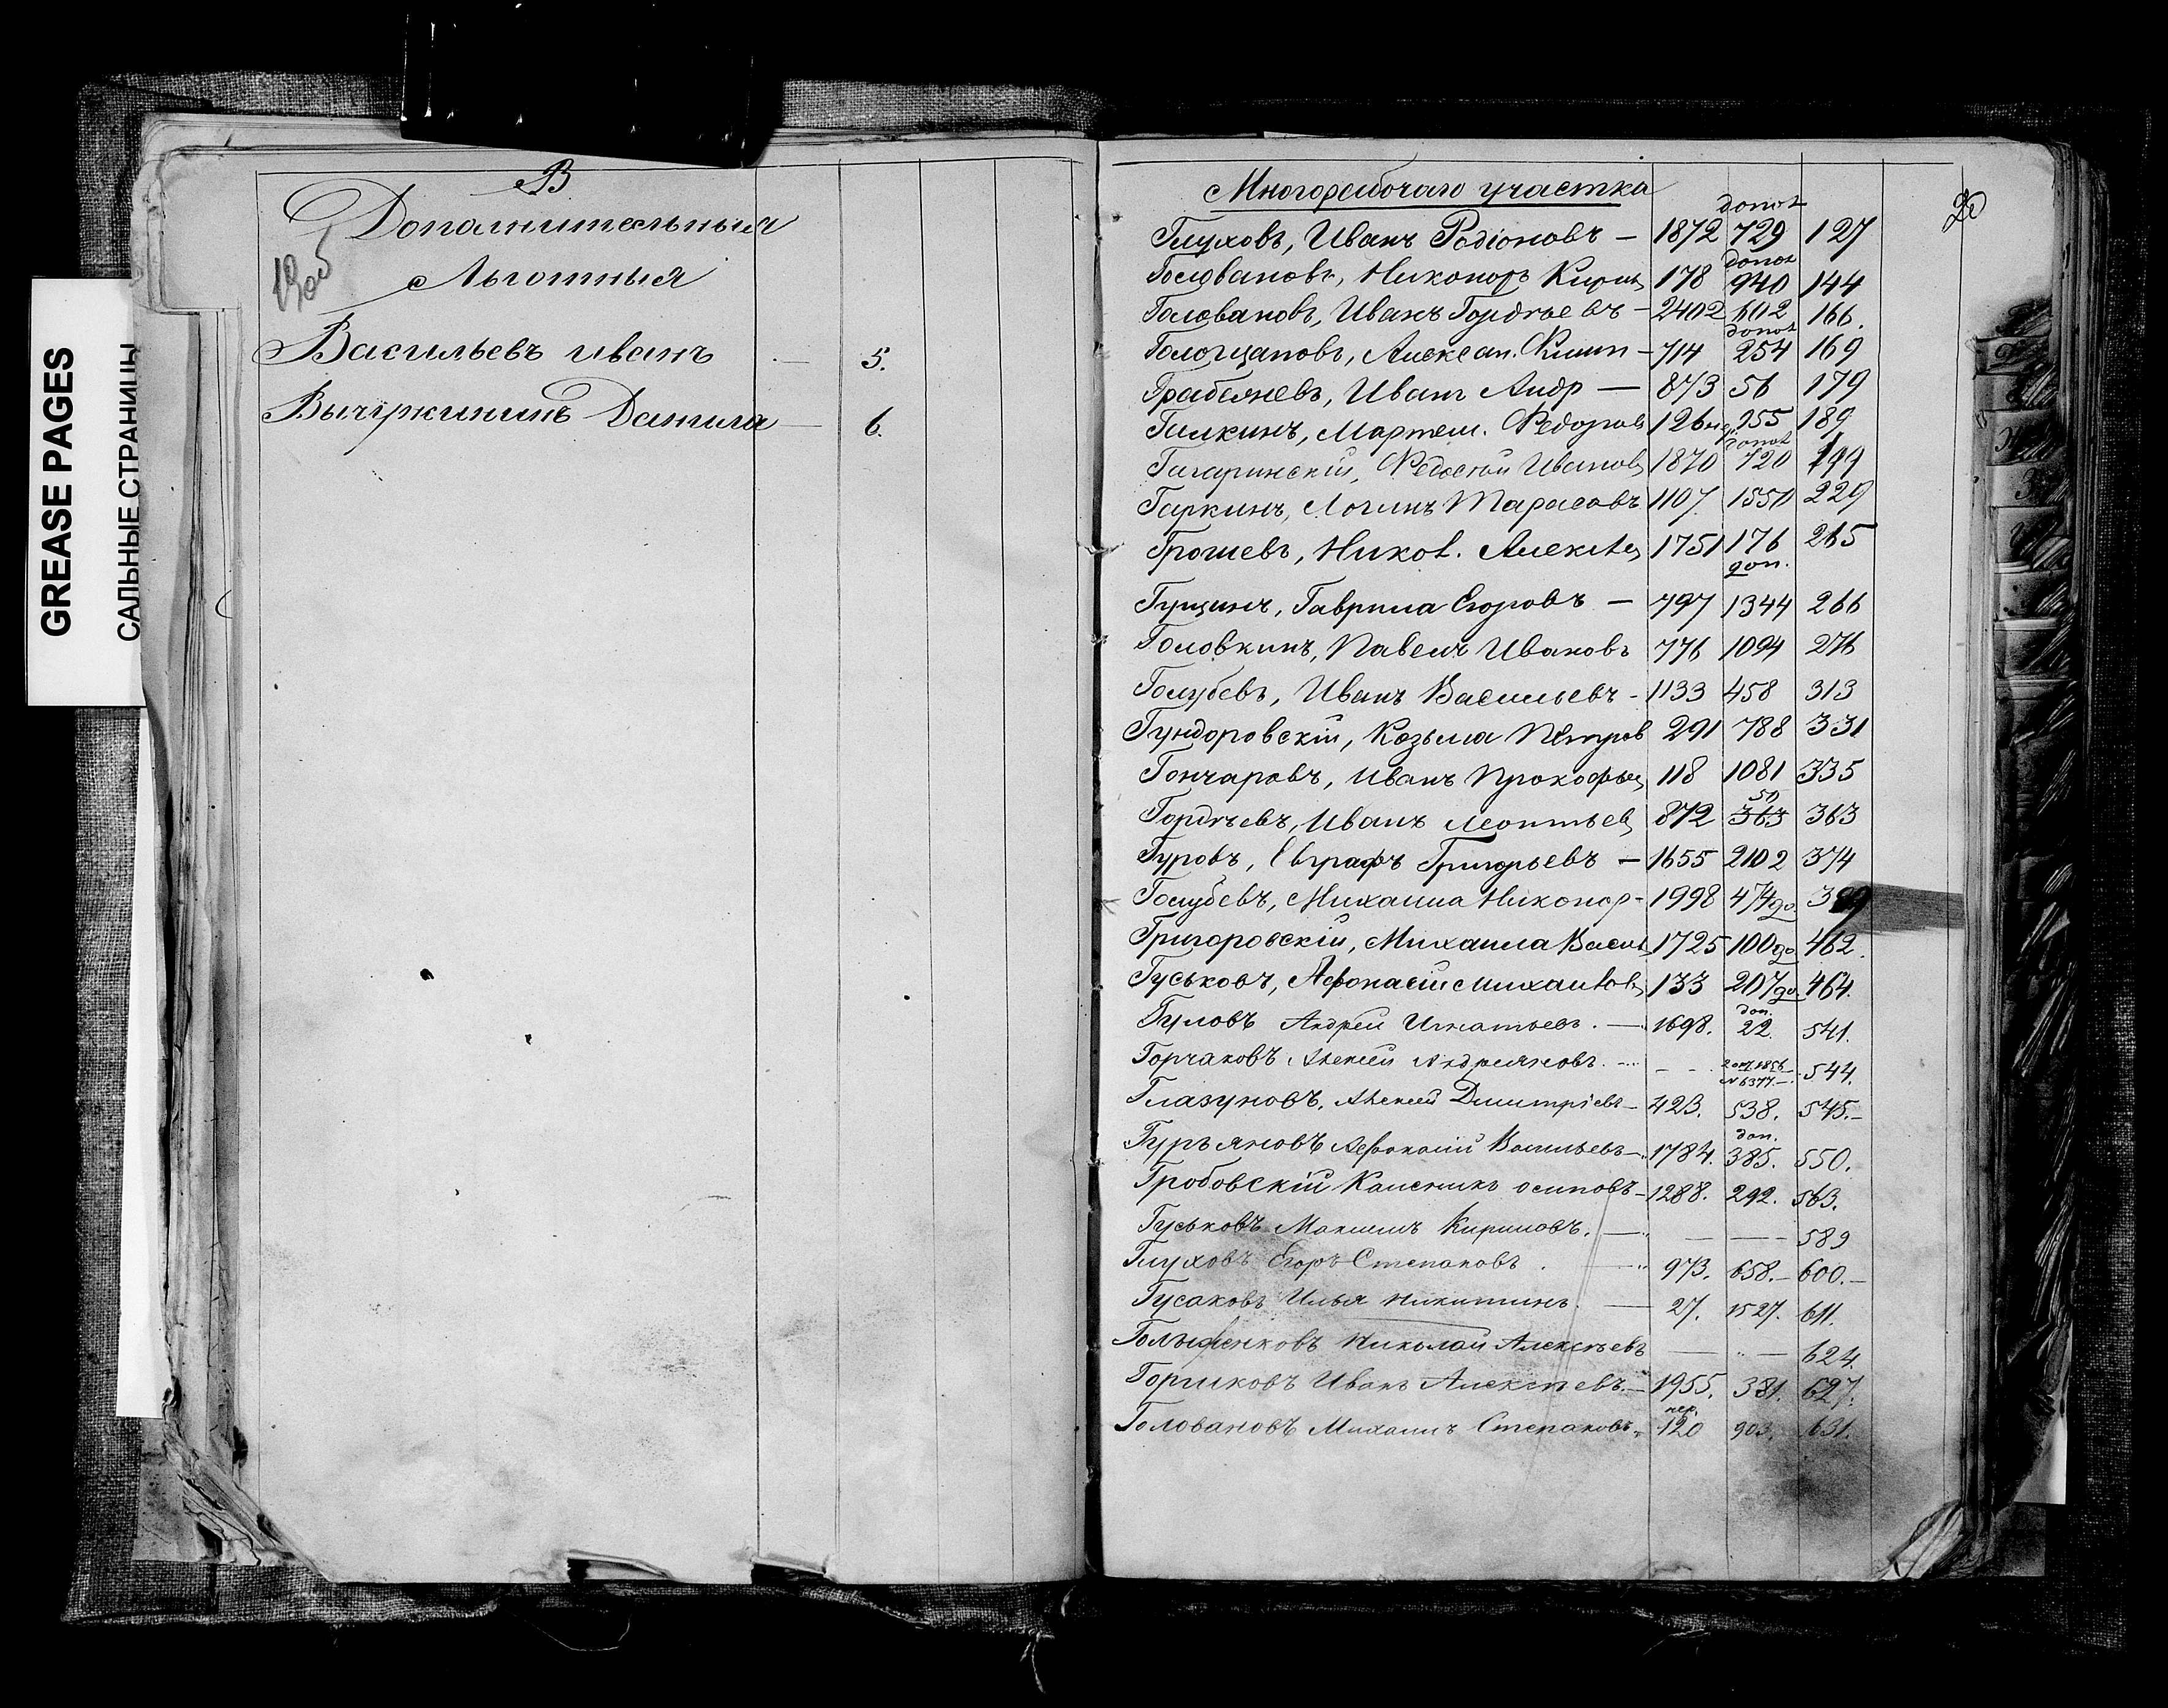 GREASE PAGES
САЛЬНЫЕ СТРАНИЦЫ
В
Дополнительныя
19об
Льготныя
Васильевъ иванъ — 5.
Данила — 6.
Многорабочаго участка
20
Глуховъ, Иванъ Родіоновъ — 1872 729 127
Головановъ, Никоноръ 178 940 144
Головановъ, Иванъ Гордѣевъ - 2402 602 166.
Алексан. Филип - 714 254 169
Иванъ Андр — 873 56 179
Галкинъ, Федоровъ 126 955 189
Гагаринскій, Ивановъ 1870 720 199
Гаркинъ, Логинъ Тарасовъ 1107 1550 229
Грошевъ, Никол. Алексѣев 1751 176 доп. 265
Гущинъ, Гаврила Егоровъ — 797 1344 266
Головкинъ, Павелъ Ивановъ 776 1094 276
Голубевъ, Иванъ Васильевъ - 1133 458 313
Гундоровскій, Козьма Петров 291 788 331
Гончаровъ, Иванъ Прокофьев 118 1081 335
Гордѣевъ, Иванъ Леонтьев 872 50 363 363
Гуровъ, Евграфъ Григорьевъ — 1655 2102 374
Голубевъ, Михаила Никонор - 1998 474 до.
Григоровскій, Михаила Васил 1725 100 до 462.
Гуськовъ, Афонасій Михайлов 133 207 до 464.
Гуловъ Андрей Игнатьевъ. — 1698. доп. 22. 541.
Горчаковъ Алексей Андреяновъ. — - - 544.
Глазуновъ, Алексей Дмитріевъ — 423. 538. 545. —
Гурьяновъ Афонасій Васильевъ — 1784. доп. 385. 550.
Гробовскій осиповъ - 1288. 292. 563.
Гуськовъ Максимъ Кириловъ. — — — 589
Глуховъ Егоръ Степановъ. — 973. 658. — 600. —
Гусаковъ Илья Никитинъ. — 27. 1527. 611.
Николай Алексѣевъ — — 624.
Горшковъ Иванъ Алексѣевъ. — 1955. 381. 627.
Головановъ Михаилъ Степановъ. пер. 120 903. 631.